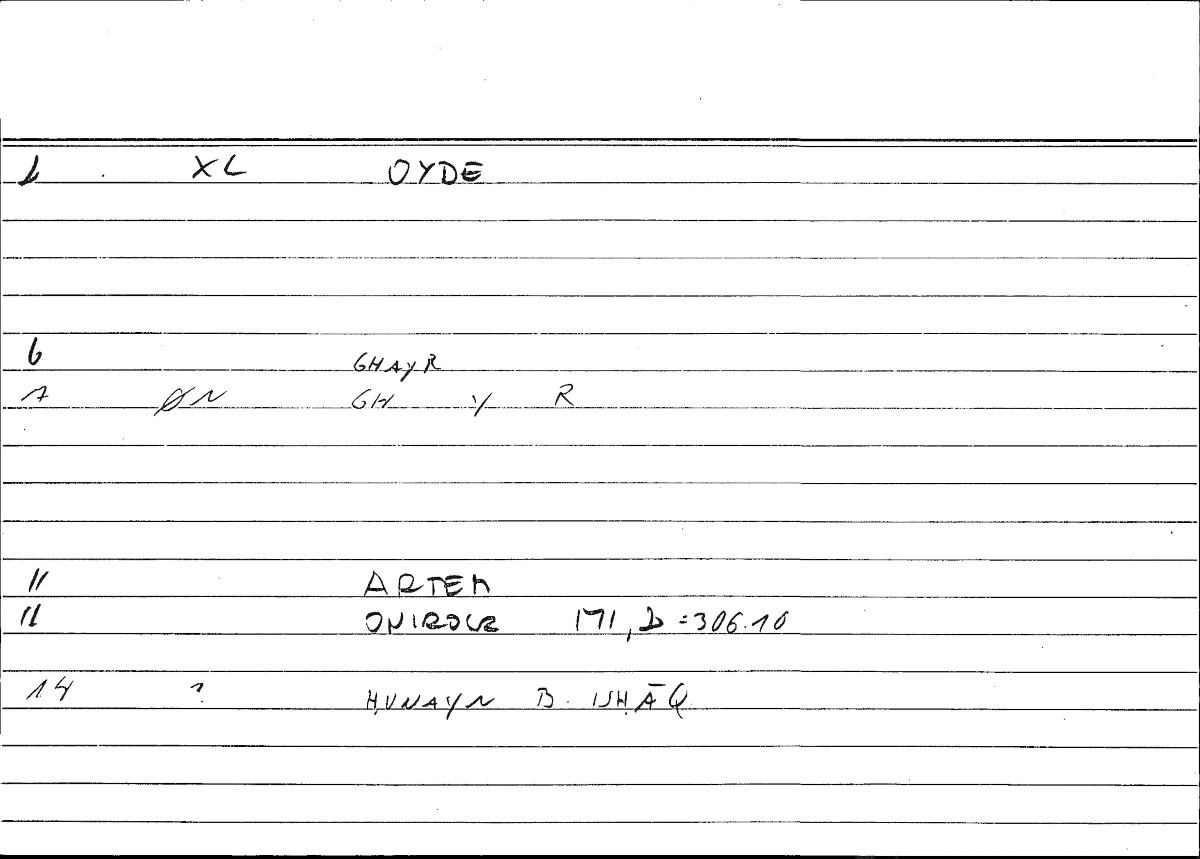 1 XL OYDE
6 GHAYR
7 ØN GH Y R
11 ARTEM
11 ONIROCR 171, 2 = 306.10
14 ? ḤUNAYN B. ISḤĀQ